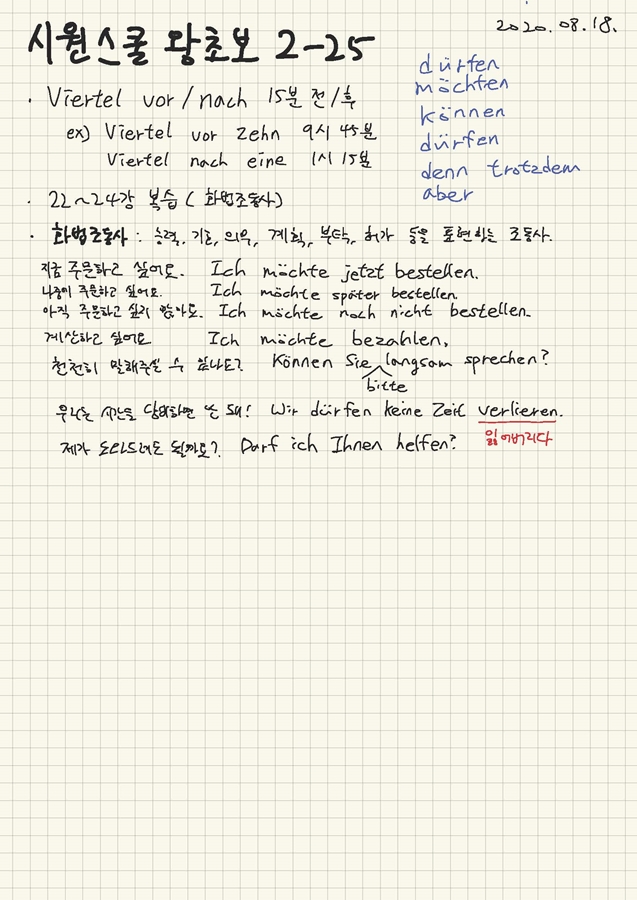 2020.08.18.
시원스쿨 왕초보 2-25
dürfen
möchten
können
dürfen
denn trotzdem
aber
· Viertel vor/nach 15분 전/후
ex) Viertel vor zehn 9시 45분
Viertel nach eine 1시 15분
· 22~24강 복습 (화법조동사)
· 화법조동사 : 능력, 기호, 의무, 계획, 부탁, 허가 등을 표현하는 조동사.
지금 주문하고 싶어요. Ich möchte jetzt bestellen.
나중에 주문하고 싶어요. Ich möchte später bestellen.
아직 주문하고 싶지 않아요. Ich möchte noch nicht bestellen.
계산하고 싶어요 Ich möchte bezahlen.
천천히 말해주실 수 있나요? Können Sie langsam sprechen?
bitte
우리는 시간을 낭비하면 안 돼! Wir dürfen keine Zeit verlieren.
잃어버리다
제가 도와드려도 될까요? Darf ich Ihnen helfen?